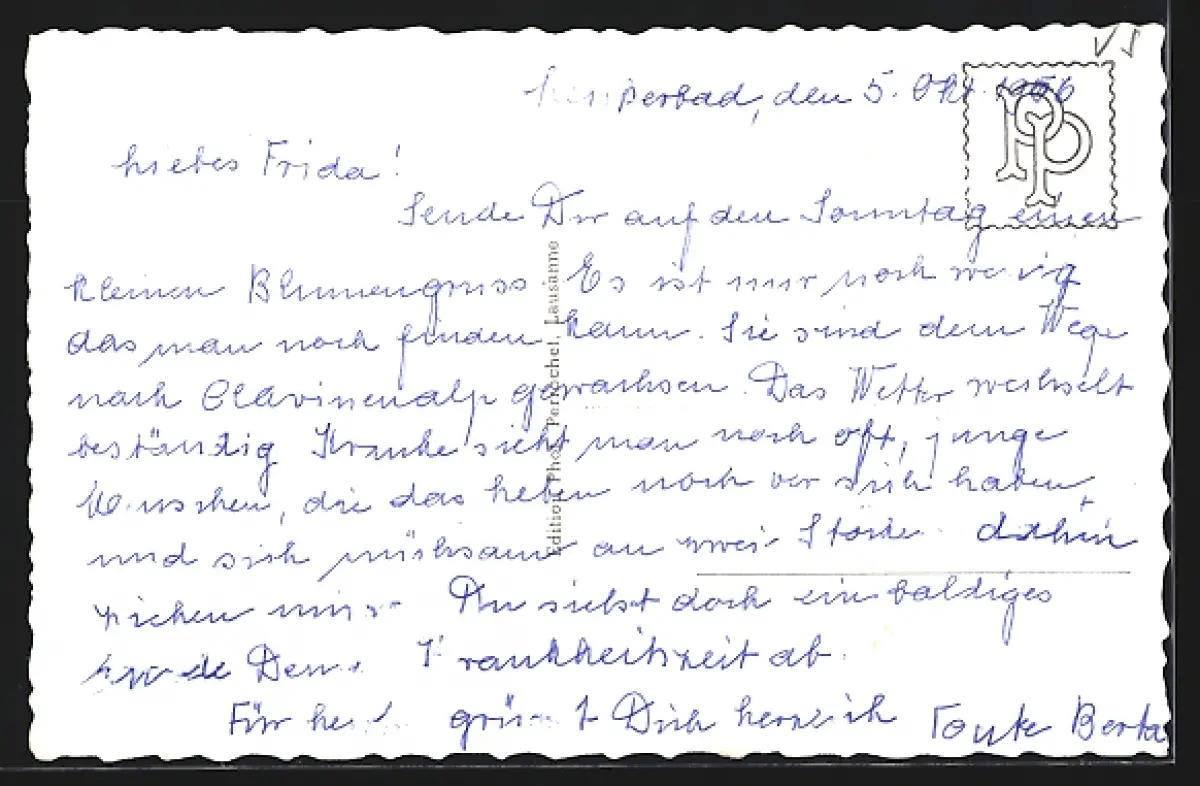 V S
den 5. Okt. 1956
Liebes Frida!
Sende Dir auf den Sonntag einen
kleinen Blumengruss. Es ist nur noch wenig
das man noch finden kann. Sie sind dem Wege
nach Clavinenalp gewachsen. Das Wetter wechselt
beständig Kranke sieht man noch oft, junge
Menschen, die das Leben noch vor sich haben,
und sich mühsam an zwei Stöcke dahin
ziehen müss. Du siehst doch ein baldiges
Ende Dein. Krankheitszeit ab.
Für heute grüsst Dich herzlich Tante Berta
Edition Phot. Perrochet, Lausanne
PP